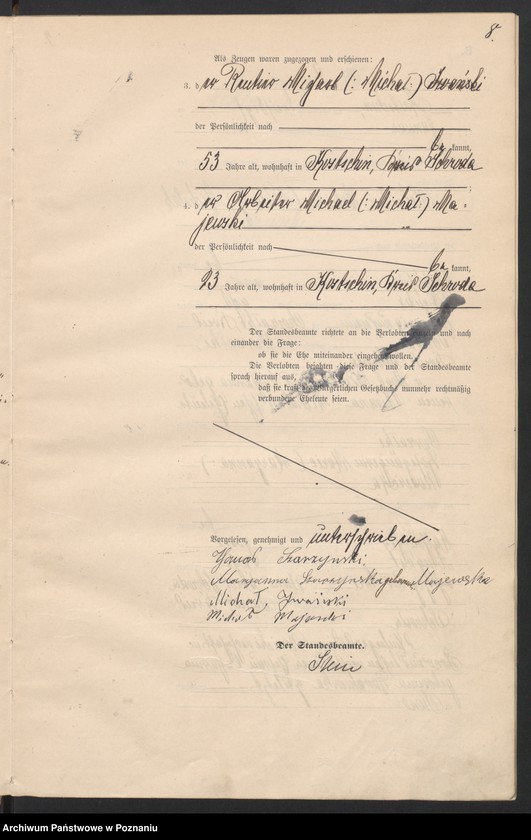 8.
Als Zeugen waren zugezogen und erschienen:
3. der Rentier Michael (: Michał :) Iwański
der Persönlichkeit nach
bekannt,
53 Jahre alt, wohnhaft in Kostschin, Kreis Schroda
4. der Arbeiter Michael (: Michał :) Ma-
jewski
der Persönlichkeit nach
bekannt,
23 Jahre alt, wohnhaft in Kostschin, Kreis Schroda
Der Standesbeamte richtete an die Verlobten und nach
einander die Frage:
ob sie die Ehe miteinander eingehen wollen.
Die Verlobten bejahten diese Frage und der Standesbeamte
sprach hierauf aus,
daß sie kraft des Bürgerlichen Gesetzbuchs nunmehr rechtmäßig
verbundene Eheleute seien.
Vorgelesen, genehmigt und unterschrieben.
Szarzyński
Maryanna Szarzyńska Majewska
Michał Iwański
Michał Majewski
Der Standesbeamte.
Stein
Archiwum Państwowe w Poznaniu